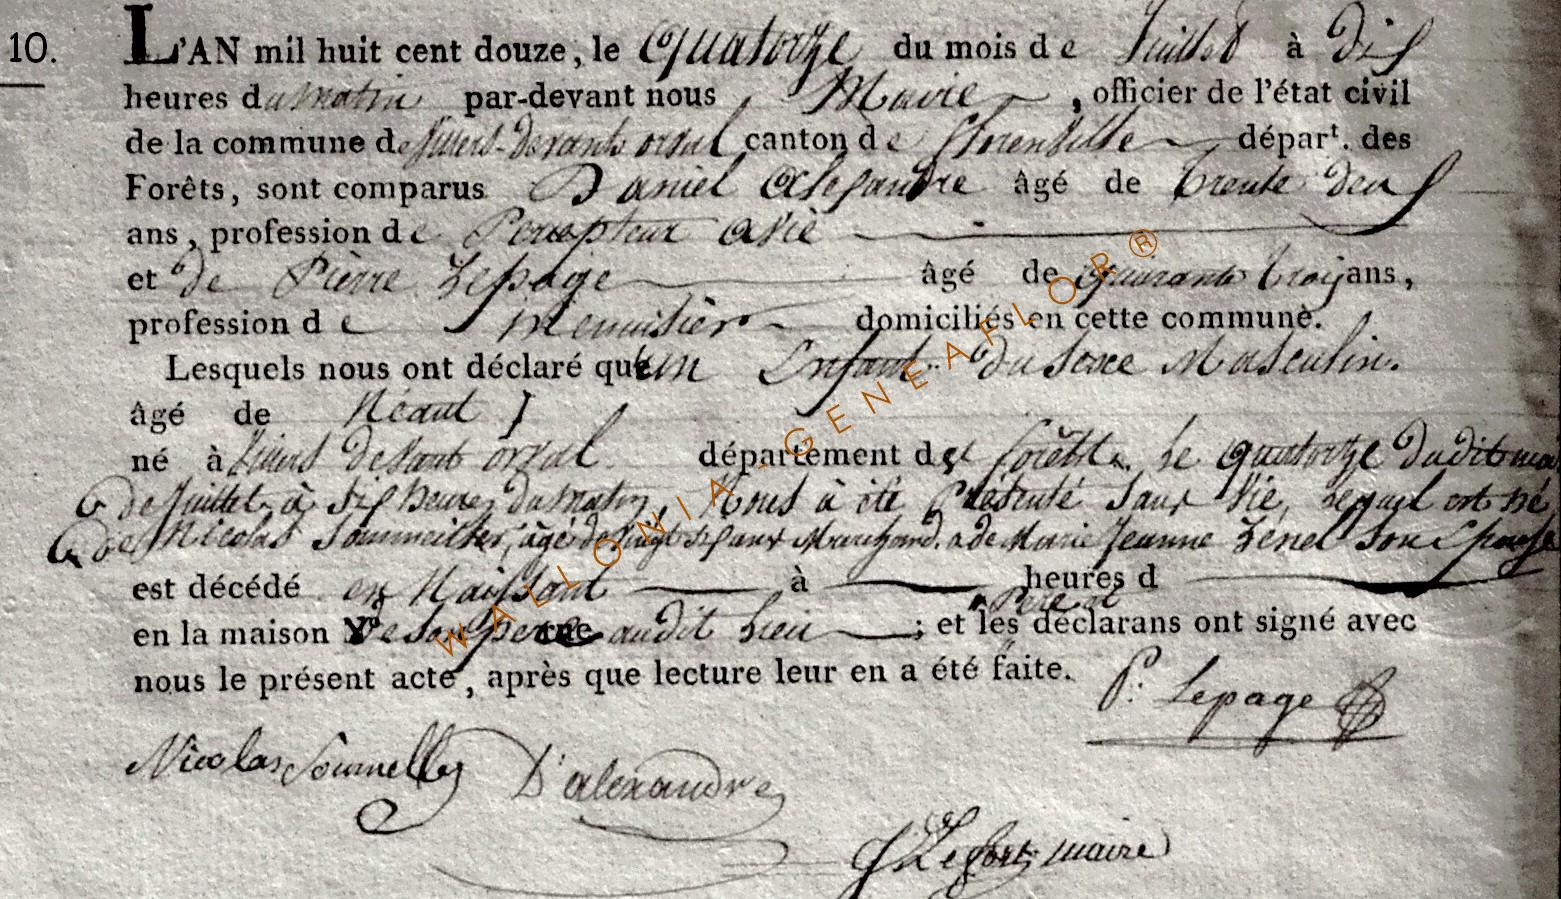 10.
L'AN mil huit cent douze, le quatorze du mois de Juillet à dix
heures du matin par-devant nous Maire, officier de l'état civil
de la commune de Villers-devant orval canton de florenville départ. des
Forêts, sont comparus Daniel Alexandre âgé de trente deux
ans, profession de Percepteur
et de Pierre Lepage âgé de quarante troisans,
profession de Menuisier domiciliés en cette commune.
Lesquels nous ont déclaré qu'un Enfant du Sexe Masculin.
âgé de Néant
né à Villers devant orval département des forêts. Le quatorze dudit mois
de Juillet, à six heures du matin, Nous à été Présenté Sans Vie, lequel est né
de Nicolas Sommeiller, âgé de vingt six ans Marchand. & de Marie Jeanne Sou Epouse
est décédé en Naissant à heures d
Père et
en la maison de Son père audit Lieu ; et les déclarans ont signé avec
nous le présent acte, après que lecture leur en a été faite.
P. Lepage
Nicolas Soumelley D'alexandre
Lefort maire
WALLONIA-GENEAFLOR®